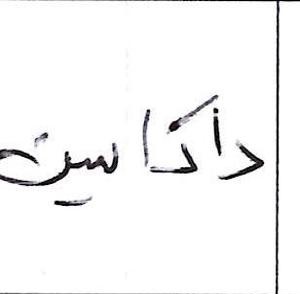 داكاسين